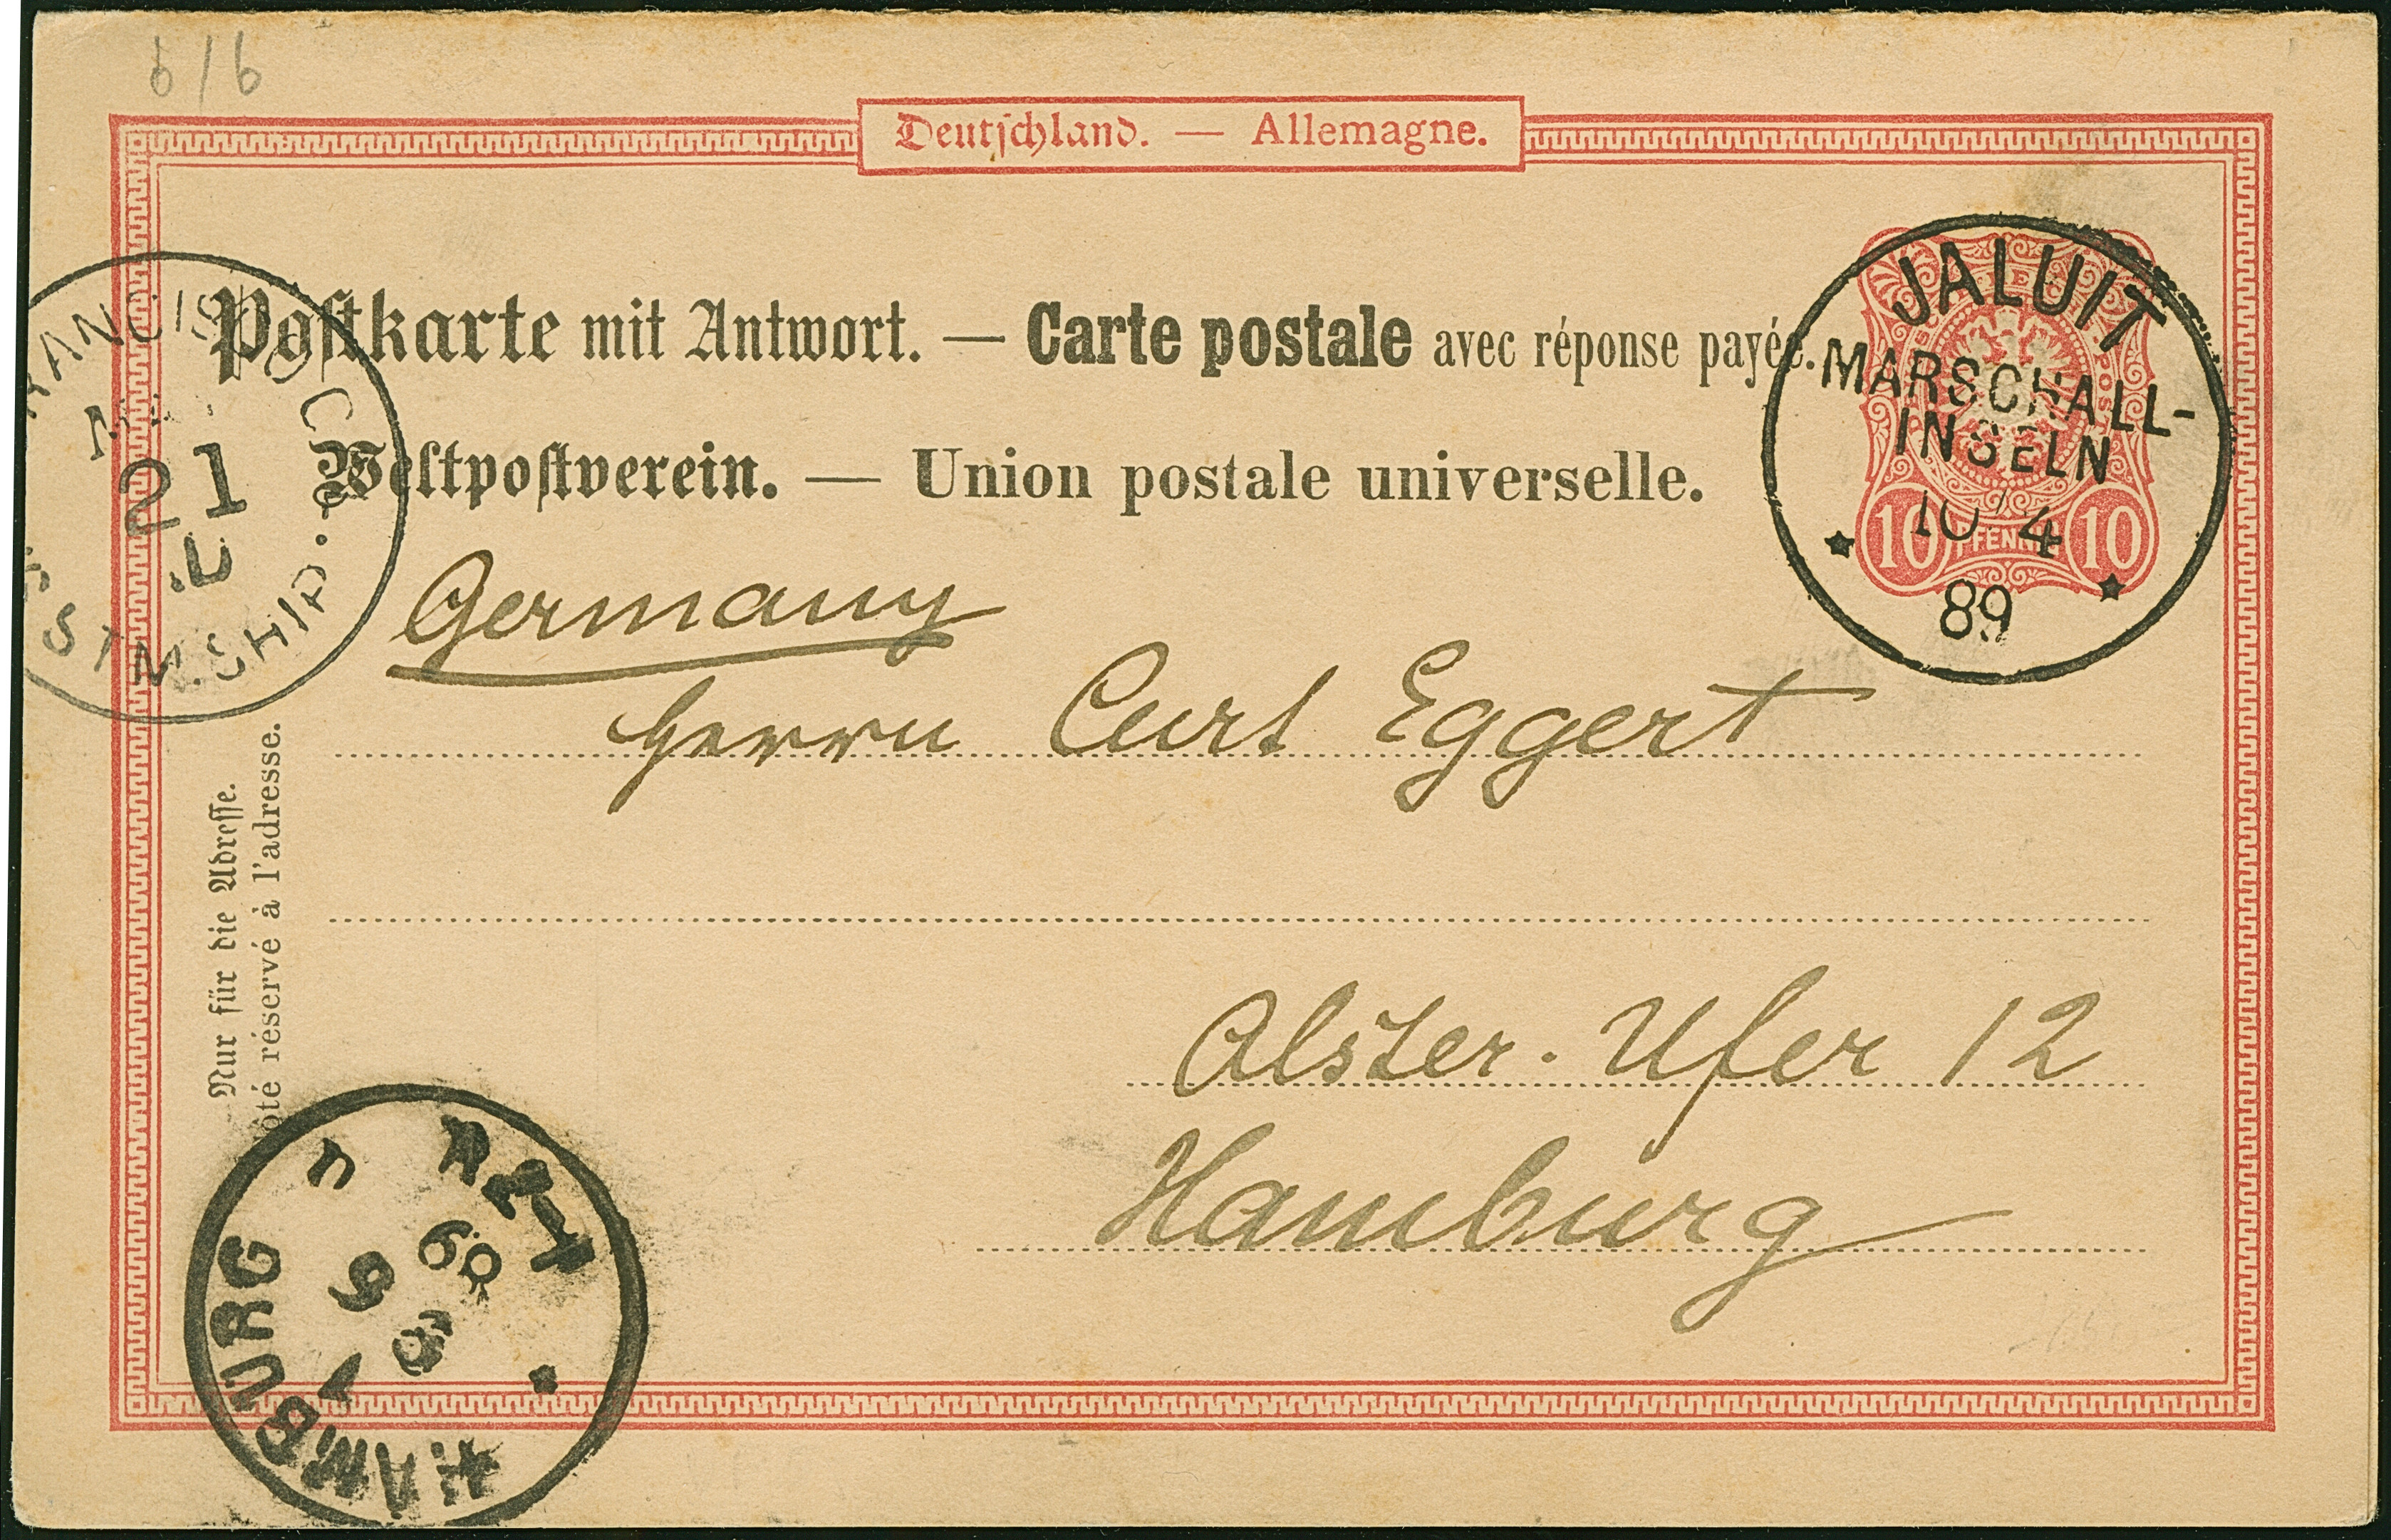 6/6
Deutschland. — Allemagne.
Postkarte mit Antwort. — Carte postale avec réponse payée.
Weltpostverein. — Union postale universelle.
JALUIT
MARSCHALL-
INSELN
10/4
89
10 PFENNIG 10
21
STM. SHIP.
Germany
Herrn Curt Eggert
Alster-Ufer 12
Hamburg
Nur für die Adresse.
Côté réservé à l'adresse.
HAMBURG
89